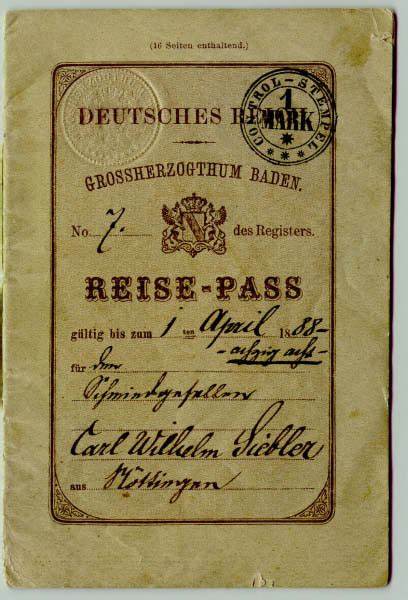 (16 Seiten enthaltend.)
DEUTSCHES REICH
CONTROL-STEMPEL
1
MARK
GROSSHERZOGTHUM BADEN.
No. 7. des Registers.
REISE-PASS
gültig bis zum 1 ten April 1888-
- achzig acht -
für den
Schmiedgesellen
Carl Wilhelm Siebler
aus Nöttingen